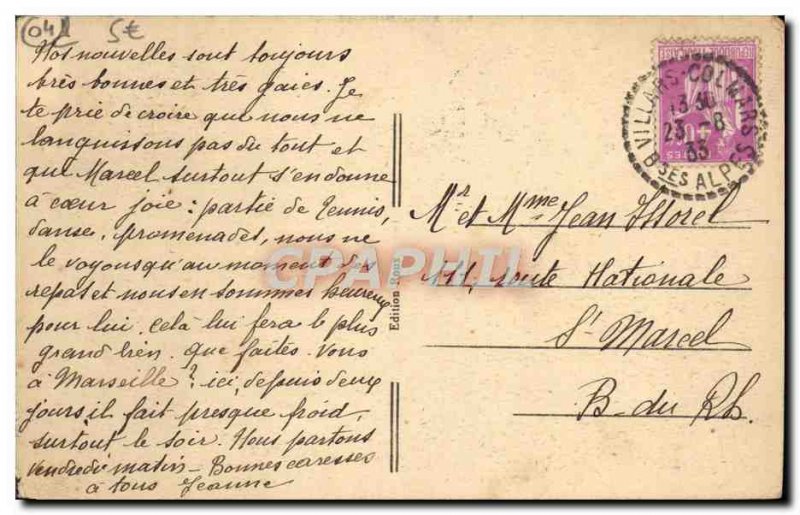 04
5€
Nos nouvelles sont toujours
très bonnes et très gaies. Je
te prie de croire que nous ne
languissons pas du tout et
que Marcel surtout s'en donne
à cœur joie : partie de tennis,
danse, promenades, nous ne
le voyons qu'au moment des
repas et nous en sommes heureux
pour lui, cela lui fera le plus
grand bien. Que faites-vous
à Marseille? ici, depuis deux
jours il fait presque froid,
surtout le soir. Nous partons
vendredi matin - Bonnes caresses
à tous Jeanne
Edition Roux
CPAPHIL
REPUBLIQUE FRANCAISE
VILLARS-COLMARS
13 30
23 - 8
33
BSES ALPES
Mr et Mme Jean Issorel
route Nationale
St Marcel
B. du Rh.